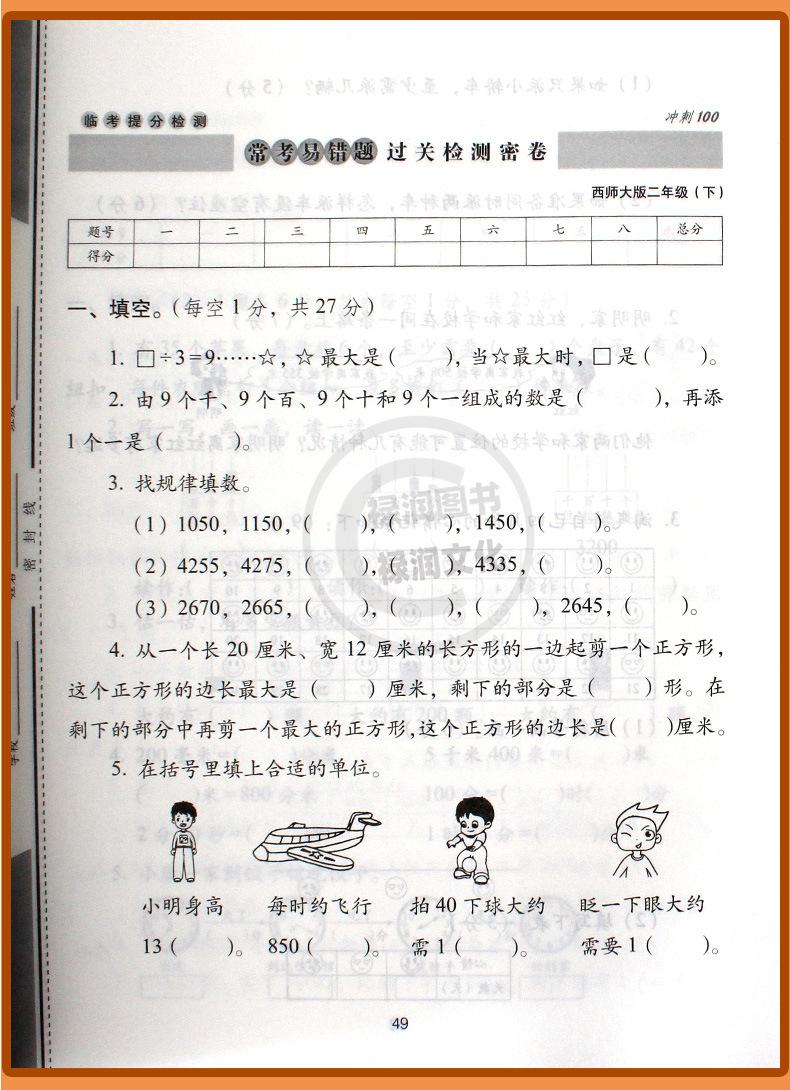 临考提分检测
冲刺100
常考易错题过关检测密卷
西师大版二年级(下)
题号 一 二 三 四 五 六 七 八 总分
得分
一、填空。(每空1分,共27分)
1. □÷3=9……☆,☆最大是( ),当☆最大时,□是( )。
2. 由9个千、9个百、9个十和9个一组成的数是( ),再添
1个一是( )。
3. 找规律填数。
(1) 1050, 1150, ( ), ( ), 1450, ( )。
(2) 4255, 4275, ( ), ( ), 4335, ( )。
(3) 2670, 2665, ( ), ( ), ( ), 2645, ( )。
4. 从一个长20厘米、宽12厘米的长方形的一边起剪一个正方形,
这个正方形的边长最大是( )厘米,剩下的部分是( )形。在
剩下的部分中再剪一个最大的正方形,这个正方形的边长是( )厘米。
5. 在括号里填上合适的单位。
小明身高 每时约飞行 拍40下球大约 眨一下眼大约
13( )。 850( )。 需1( )。 需要1( )。
49
密封线
学校
姓名
班级
禄润图书
禄润文化